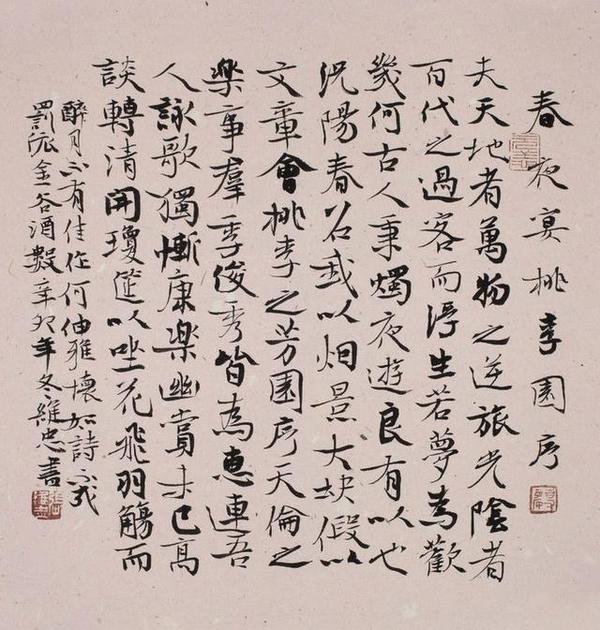 春夜宴桃李園序
夫天地者萬物之逆旅光陰者
百代之過客而浮生若夢為歡
幾何古人秉燭夜遊良有以也
況陽春召我以烟景大塊假以
文章會桃李之芳園序天倫之
樂事羣季俊秀皆為惠連吾
人詠歌獨慚康樂幽賞未已高
談轉清開瓊筵以坐花飛羽觴而
醉月不有佳作何伸雅懷如詩不成
罰依金谷酒數辛卯年冬維忠書